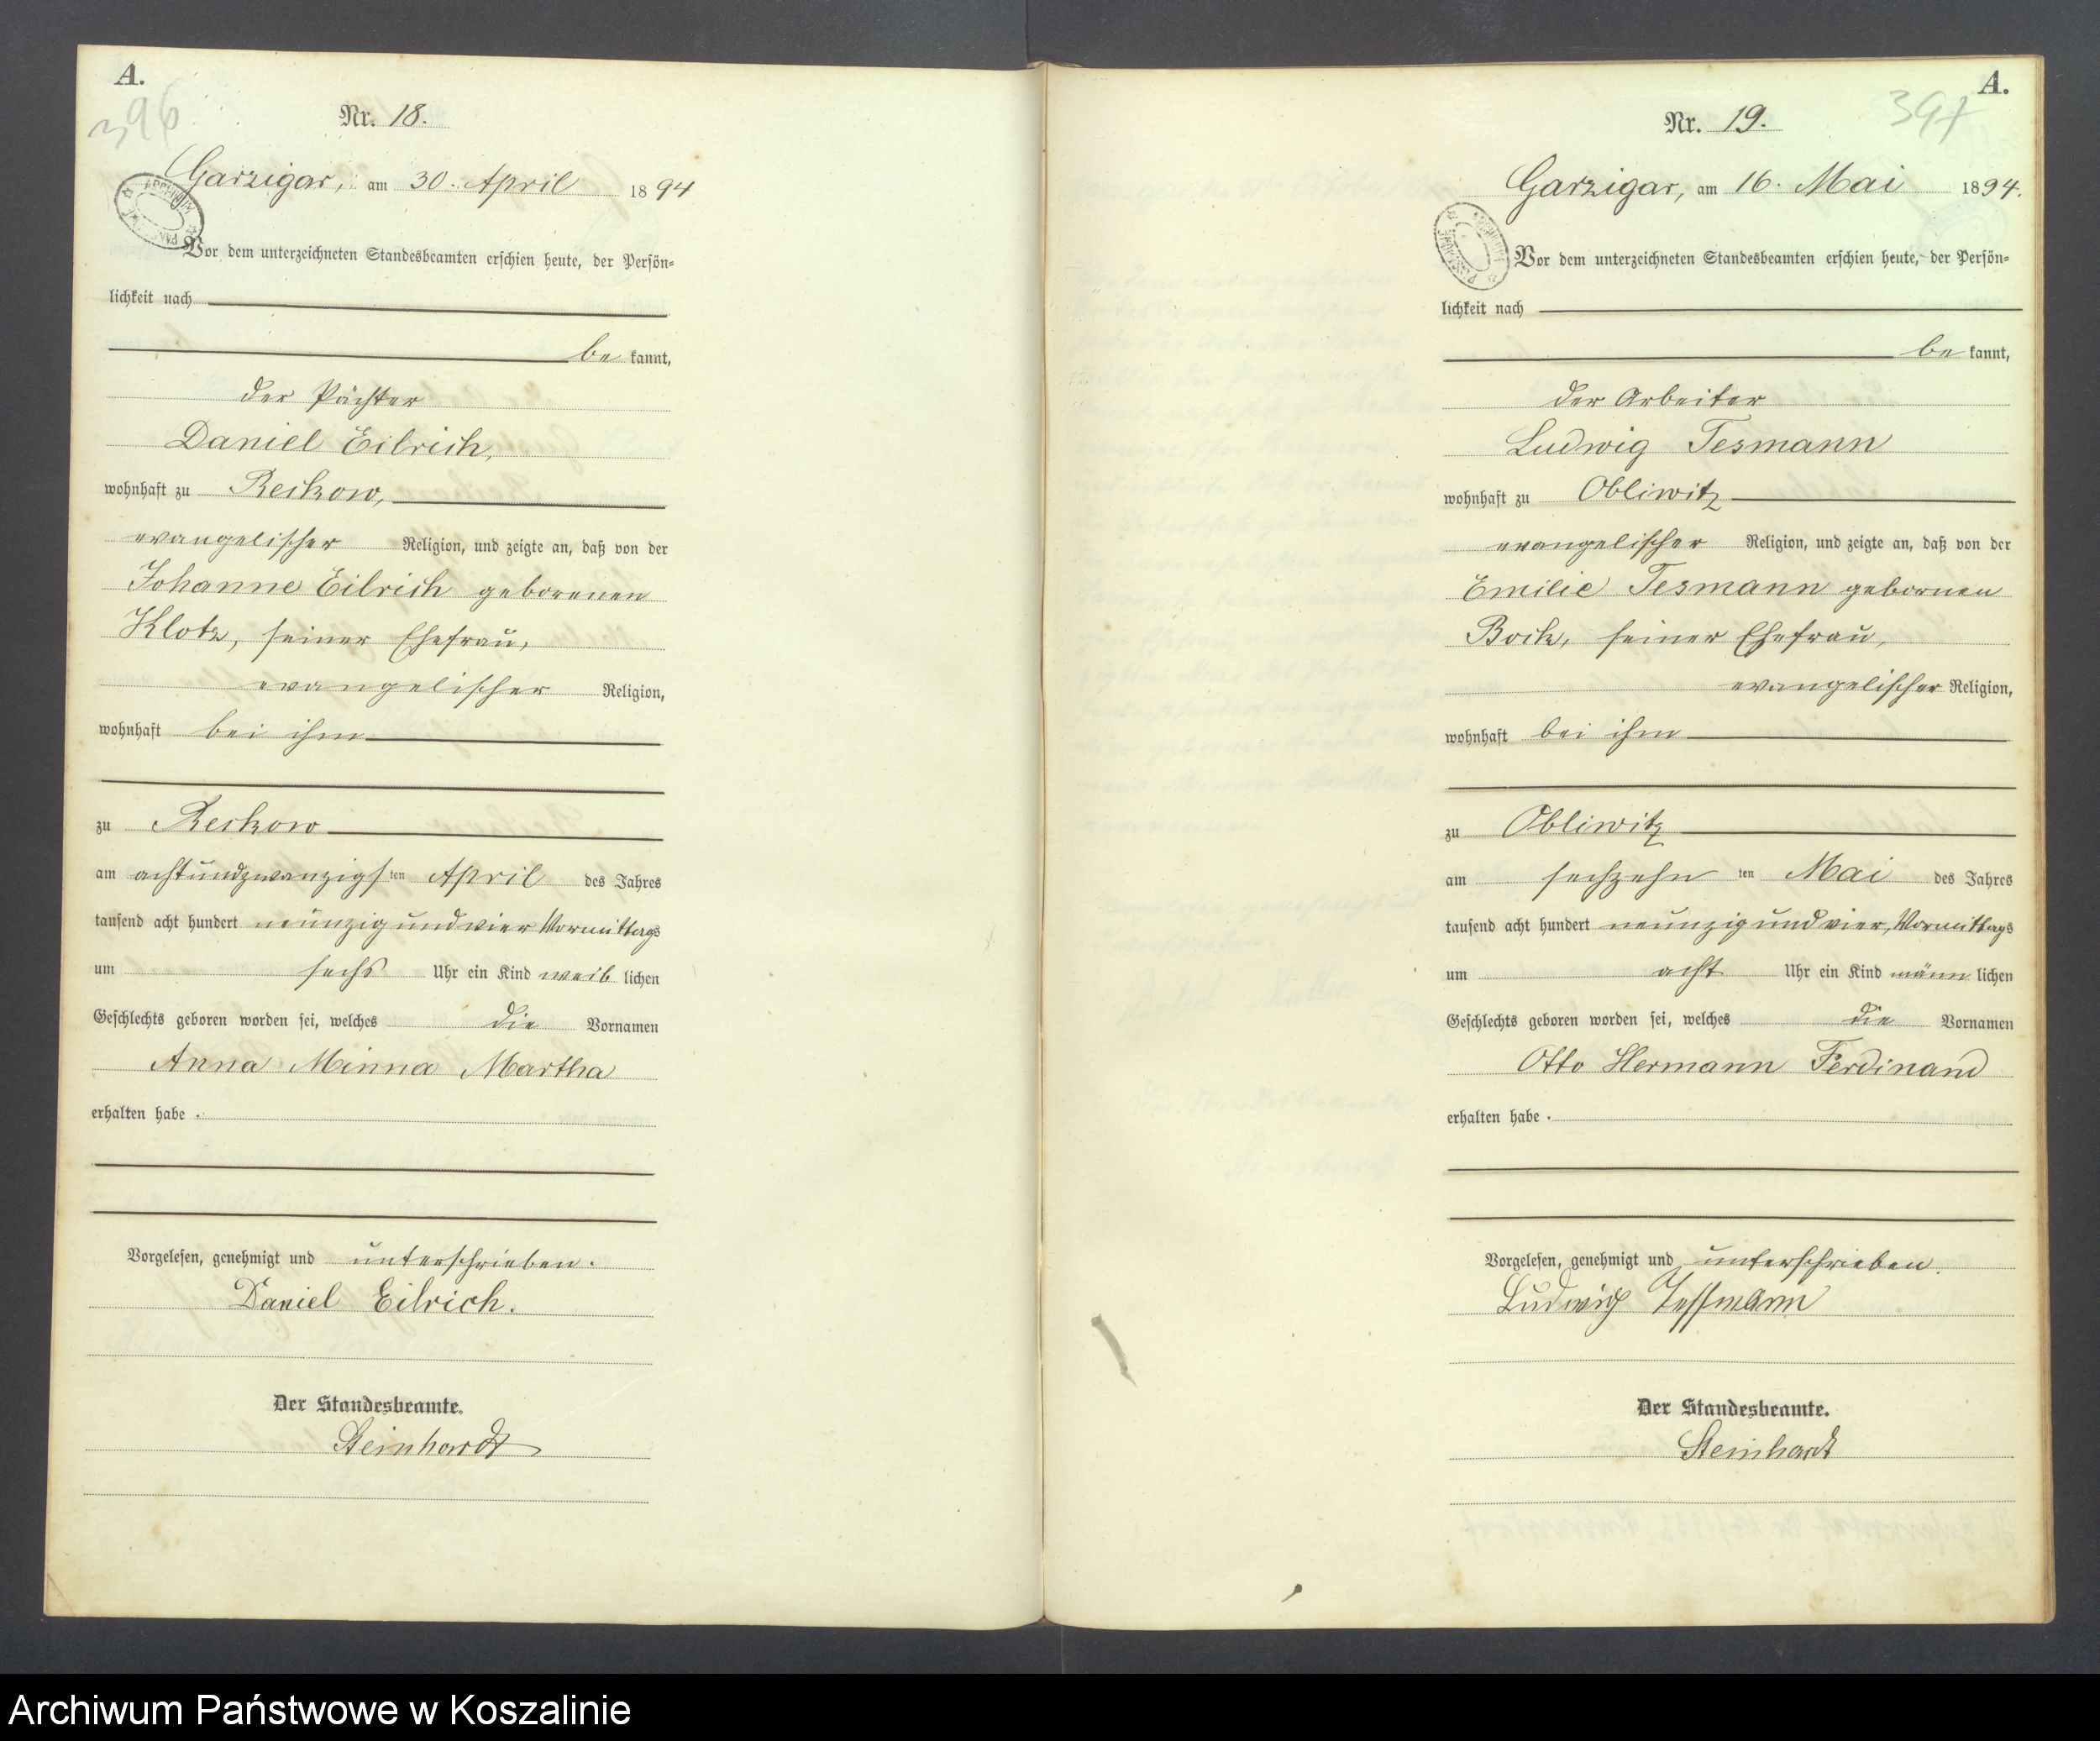 A.
396
Nr. 18.
Garzigar, am 30. April 1894
Vor dem unterzeichneten Standesbeamten erschien heute, der Persön=
lichkeit nach
be kannt,
der Pächter
Daniel Eilrich,
wohnhaft zu Reckow,
evangelischer Religion, und zeigte an, daß von der
Johanne Eilrich geborenen
Klotz, seiner Ehefrau,
evangelischer Religion,
wohnhaft bei ihm
zu Reckow
am achtundzwanzigsten April des Jahres
tausend acht hundert neunzig und vier Vormittags
um sechs Uhr ein Kind weib lichen
Geschlechts geboren worden sei, welches die Vornamen
Anna Minna Martha
erhalten habe.
Vorgelesen, genehmigt und unterschrieben.
Daniel Eilrich.
Der Standesbeamte.
Steinhardt
A.
397
Nr. 19.
Garzigar, am 16. Mai 1894.
Vor dem unterzeichneten Standesbeamten erschien heute, der Persön=
lichkeit nach
be kannt,
der Arbeiter
Ludwig Tesmann
wohnhaft zu Obliwitz
evangelischer Religion, und zeigte an, daß von der
Emilie Tesmann gebornen
Bock, seiner Ehefrau,
evangelischer Religion,
wohnhaft bei ihm
zu Obliwitz
am sechzehn ten Mai des Jahres
tausend acht hundert neunzig und vier, Vormittags
um acht Uhr ein Kind männ lichen
Geschlechts geboren worden sei, welches die Vornamen
Otto Hermann Ferdinand
erhalten habe.
Vorgelesen, genehmigt und unterschrieben.
Ludwig Tessmann
Der Standesbeamte.
Steinhardt
Archiwum Państwowe w Koszalinie